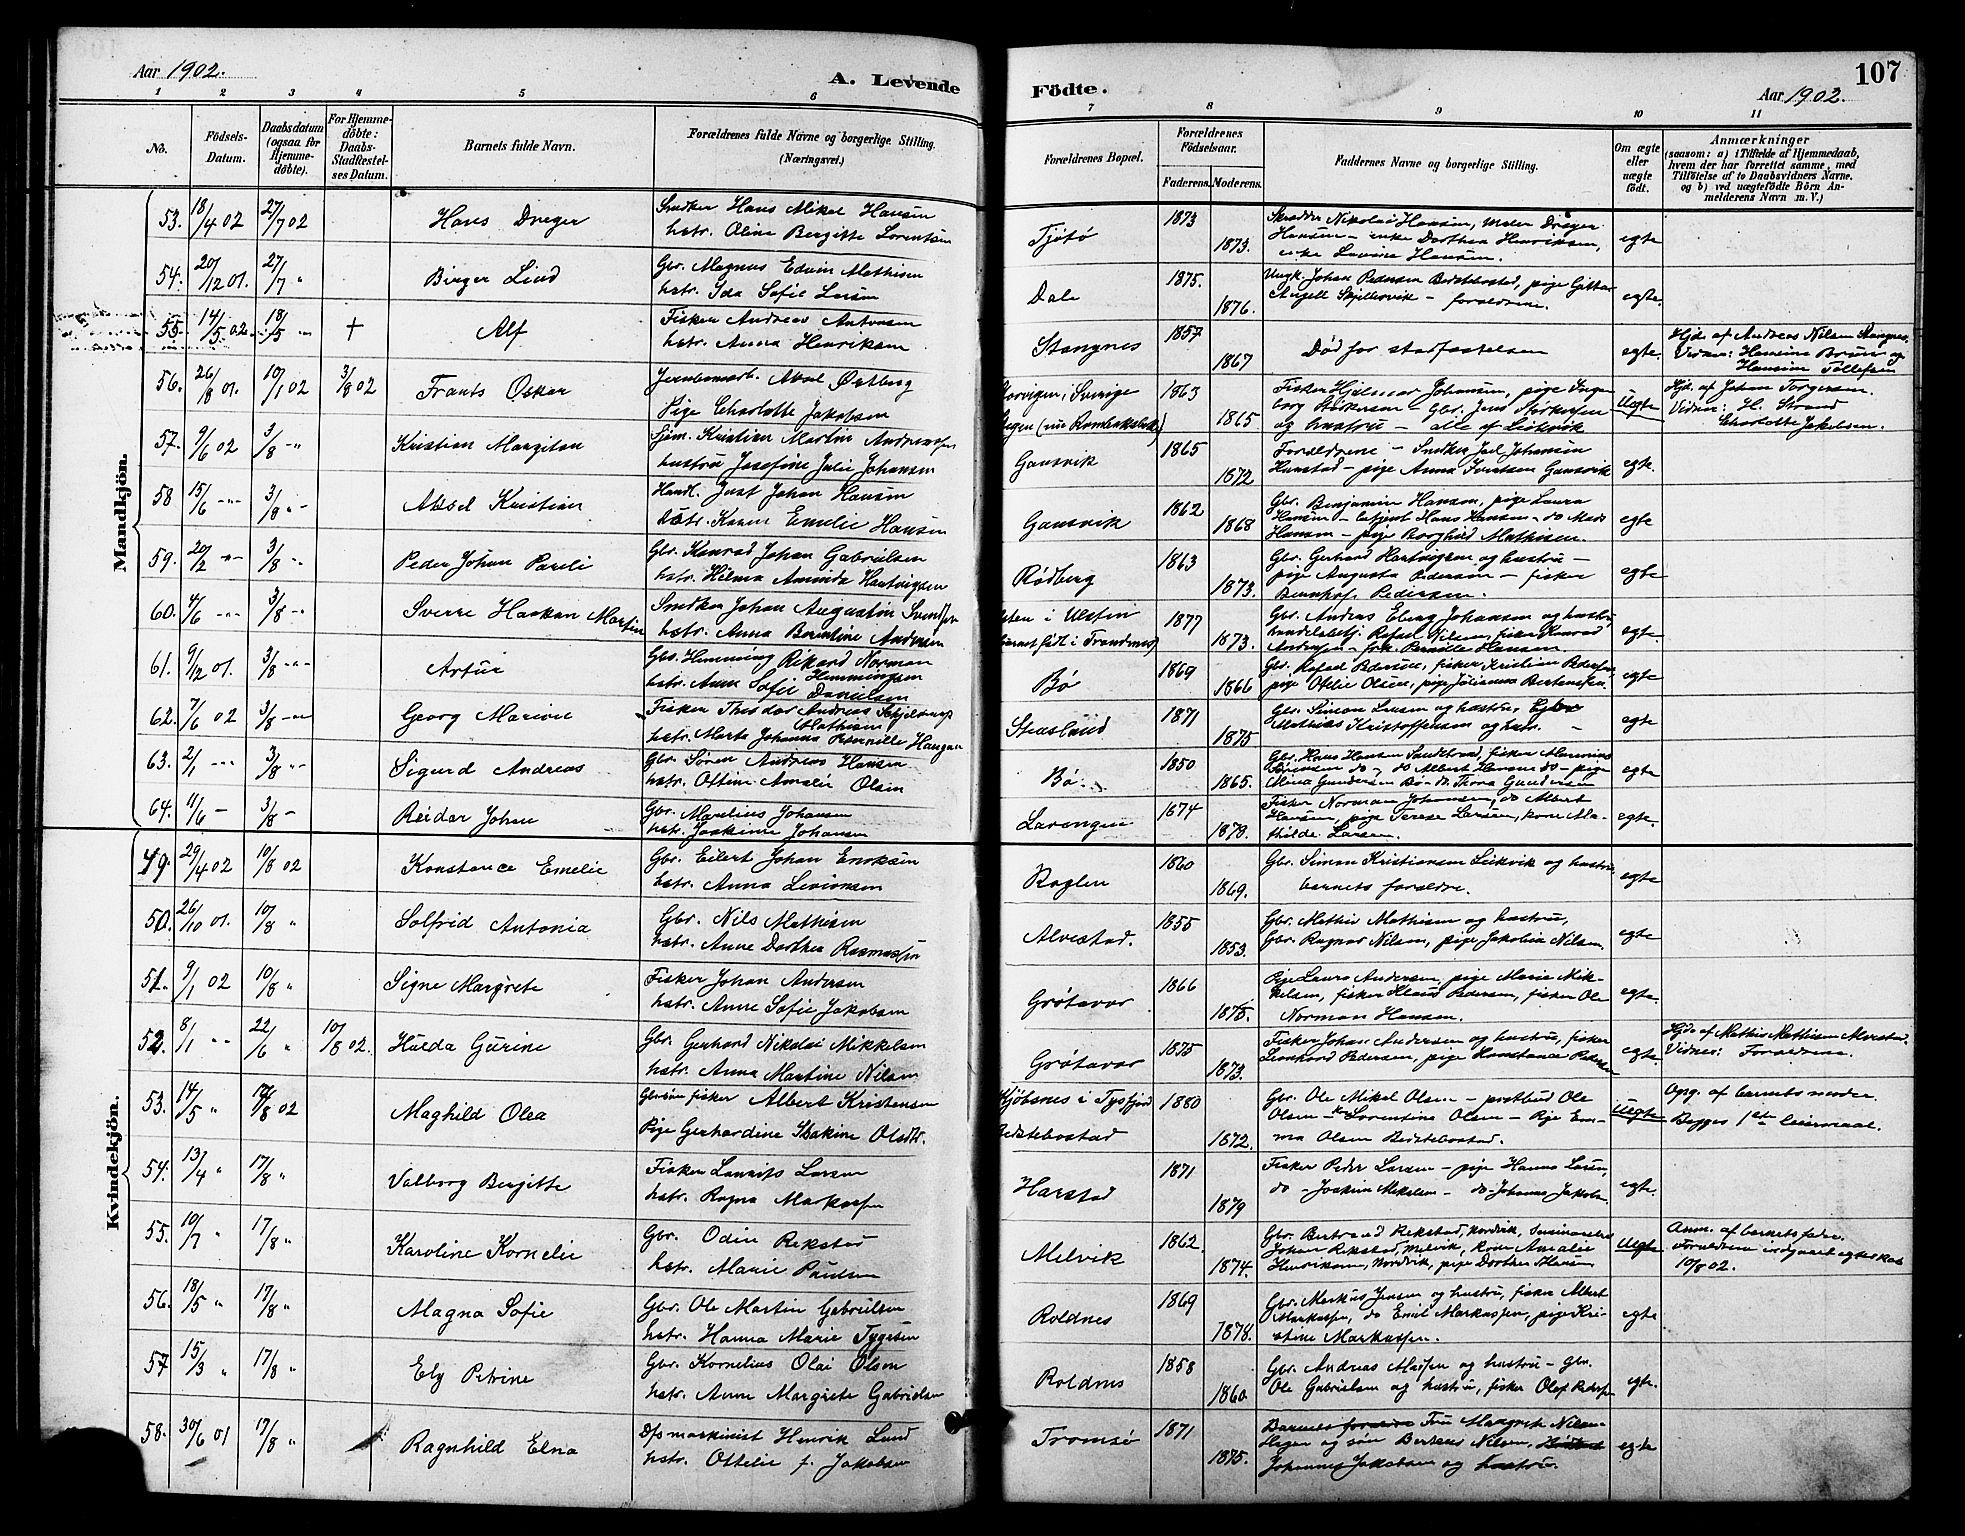 Aar 1902.
A. Levende
Födte.
Aar 1902.
107
1 2 3 4 5 6 7 8 9 10 11
No.
Födsels-
Datum.
Daabsdatum
(ogsaa for
Hjemme-
döbte).
For Hjemme-
döbte:
Daabs-
Stadfæstel-
ses Datum.
Barnets fulde Navn.
Forældrenes fulde Navne og borgerlige Stilling.
(Næringsvei.)
Forældrenes Bopæl.
Forældrenes
Födselsaar.
Faderens. Moderens.
Faddernes Navne og borgerlige Stilling.
Om ægte
eller
uægte
födt.
Anmærkninger
(saasom: a) i Tilfælde af Hjemmedaab,
hvem der har forrettet samme, med
Tilföielse af to Daabsvidners Navne.
og b) ved uægtefödte Börn An-
melderens Navn m. V.)
Mandkjön.
53. 18/4 02 27/7 02 Hans Dreyer
Snedker Hans Mikal Hansen
hstr. Oline Bergitte Lorentsen
Tjötö 1873 1873.
Skrædder Nikolai Hansen, Maler Dreyer
Hansen – enke Dorthea Henriksen,
enke Lovise Hansen.
egte
54. 20/12 01. 27/7 " Birger Lind
Gbr. Magnus Edvin Mathisen
hstr. Ida Sofie Larsen
Dale 1875. 1876.
Ungk. Johan Pedersen Beistebostad, pige
Angell Skjellesvik – forældrene.
egte.
55. 14/5 02 18/5 " + Alf
Fisker Andreas Antonsen
hstr. Anna Henriksen
Stangnes 1857 1867
Död før stadfæstelsen
egte.
Hjd. af Andreas Nilsen Stangnes.
Vidner: Hansine Bruun og
Hansine Tollefsen
56. 26/8 01. 10/1 02 3/8 02 Frants Oskar
Jernbanearb. Aksel Østberg
Pige Charlotte Jakobsen
Sverige
1863 1865
Fisker Hjelmar Johansen, pige Inge-
borg Størkersen – Gbr. Jens Størkersen
og hustru – alle af Leikvik
Uegte
Hjd. af Johan Torgersen.
Vidner: H. Strand
Charlotte Jakobsen.
57. 9/6 02 3/8 " Kristian Margitan
Sjöm. Kristian Martin Andreassen
hustru Josefine Julie Johansen
Gansvik 1865 1872
Forældrene – Snedker Joh. Johansen
Harstad – pige Anna Ivertsen Gansvik
egte.
58 15/6 " 3/8 " Aksel Kristian
Handl. Just Johan Hansen
hstr. Karen Emelie Hansen
Gansvik 1862 1868
Gbr. Benjamin Hansen, pige Laura
Hansen – betjent Hans Hansen – do Mads
Hansen – pige Borghild Mathisen.
egte
59. 20/2 " 3/8 " Peder Johan Pareli
Gbr. Konrad Johan Gabrielsen
hstr. Hilma Amanda Hartvigsen
Rödberg 1863 1873.
Gbr. Gerhard Hartvigsen og hustru –
pige Augusta Pedersen – fisker
Bernhof Pedersen.
egte
60. 4/6 " 3/8 " Sverre Haakon Martin
Snedker Johan Augustin Svendsen
hstr. Anna Berentine Andersen
i Ulstein
(barnet födt i Trondenes)
1877 1873.
Gbr. Andreas Eberg Johansen og hustru,
handelsbetj. Rafael Nilsen, fisker Konrad
Andersen – frk. Pernille Hansen
egte.
61. 9/12 01. 3/8 " Artur
Gbr. Hemming Rikard Norman Hemmingsen
hstr. Anne Sofie Danielsen
Bö 1869 1866
Gbr. Rafael Pedersen, fisker Kristian Pedersen
pige Otelie Olsen, pige Julianna Berthensen
egte
62. 7/6 02 3/8 " Georg Marion
Fisker Theodor Andreas Mathisen
hstr. Marte Johanna Pernille Haugan
Stensland 1871 1875
Gbr. Simon Larsen og hustru,
Mathias Kristoffersen og hstr.
egte
63. 2/1 " 3/8 " Sigurd Andreas
Gbr. Sören Andreas Hansen
hstr. Ottine Amalie Olsen
Bö 1850 1865.
Gbr. Hans Hansen Sandstrand, fisker
Sörensen do, do Albert Hansen do – pige
Alvina Gundersen Bö – do. Thora Gundersen
egte
64. 11/6 – 3/8 – Reidar Johan
Gbr. Marelius Johansen
hstr. Joakime Johansen
Lavangen 1874 1878.
Fisker Norman Johansen, do Albert
Hansen, pige Terese Larsen, kone Ma-
thilde Larsen.
egte.
Kvindekjön.
49. 29/4 02 10/8 02 Konstance Emelie
Gbr. Eilert Johan Enoksen
hstr. Anna Levionsen
Roglen 1860 1869.
Gbr. Simon Kristiansen Leikvik og hustru,
barnets forældre.
egte
50. 26/10 01. 10/8 " Solfrid Antonia
Gbr. Nils Mathisen
hstr. Anne Dorthea Rasmussen
Alvestad. 1855 1853.
Gbr. Mathis Mathisen og hustru,
Gbr. Ragnar Nilsen, pige Jakobine Nilsen.
egte
51. 9/1 02 10/8 " Signe Margrete
Fisker Johan Andersen
hstr. Anne Sofie Jakobsen
Grötavær 1866 1875.
Pige Laura Andersen, pige Marie Mik-
kelsen, fisker Klaus Pedersen, fisker Ole
Norman Hansen.
egte.
52. 8/1 " 22/6 " 10/8 02. Hulda Gurine
Gbr. Gerhard Nikolai Mikkelsen
hstr. Anna Martine Nilsen
Grötavær 1875 1873.
Fisker Johan Andersen og hustru, fisker
Leonhard Pedersen, pige Konstance Pedersen
egte.
Hjdo af Mathis Mathisen Alvestad.
Vidner: Forældrene.
53. 14/5 " 17/8 02 Maghild Olea
Gbrsön fisker Albert Kristensen
Pige Gerhardine Joakine Olsdtr.
Kjöbsnes i Tysfjord
Beistebostad
1880 1872.
Gbr. Ole Mikal Olsen – postbud Ole
Olsen – Lorentine Olsen – Pige Em-
ma Olsen Beistebostad.
Uegte
Opg. af barnets moder.
Begges 1ste leiermaal.
54. 13/4 " 17/8 " Valborg Bergitte
Fisker Laurits Larsen
hstr. Ragna Markussen
Harstad 1871 1879
Fisker Peder Larsen – pige Hanna Larsen,
do – Joakim Mikalsen – do Johanna Jakobsen
egte.
55. 10/7 " 17/8 " Karoline Kornelie
Gbr. Odin Rekstad
hstr. Marie Paulsen
Melvik 1862 1874.
Gbr. Bertrand Rekstad, Nordvik, Seminarelev
Johan Rekstad, Melvik, Kone Amalie
Henriksen, Nordvik, pige Dorthea Hansen
Uegte
Anm. af barnets fader.
Forældrene indgaaet egteskab
10/8 02.
56. 18/5 " 17/8 " Magna Sofie
Gbr. Ole Martin Gabrielsen
hstr. Hanna Marie Tygesen
Roldnes 1869 1878.
Gbr. Markus Jensen og hustru, fisker Albert
Markussen, do Emil Markussen, pige Kri-
stine Markussen.
egte
57 15/3 " 17/8 " Ely Petrine
Gbr. Kornelius Olai Olsen
hstr. Anne Margrete Gabrielsen
Roldnes 1858 1860.
Gbr. Andreas Masen og hustru – gbr.
Ole Gabrielsen og hustru, fisker Olaf Pedersen
egte.
58. 30/6 01 17/8 " Ragnhild Elna
Dpsmaskinist Henrik Lund
hstr. Ottelie f. Jakobsen
Tromsö 1871 1875.
Barnets forældre Fru Margrete Nilsen
Hagen og sön Berteus Nilsen,
Johannes Jakobsen og hustru.
egte